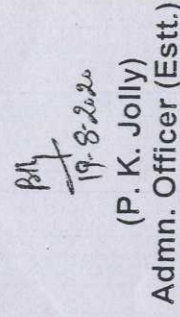 19-8-2020
(P. K. Jolly)
Admn. Officer (Estt.)